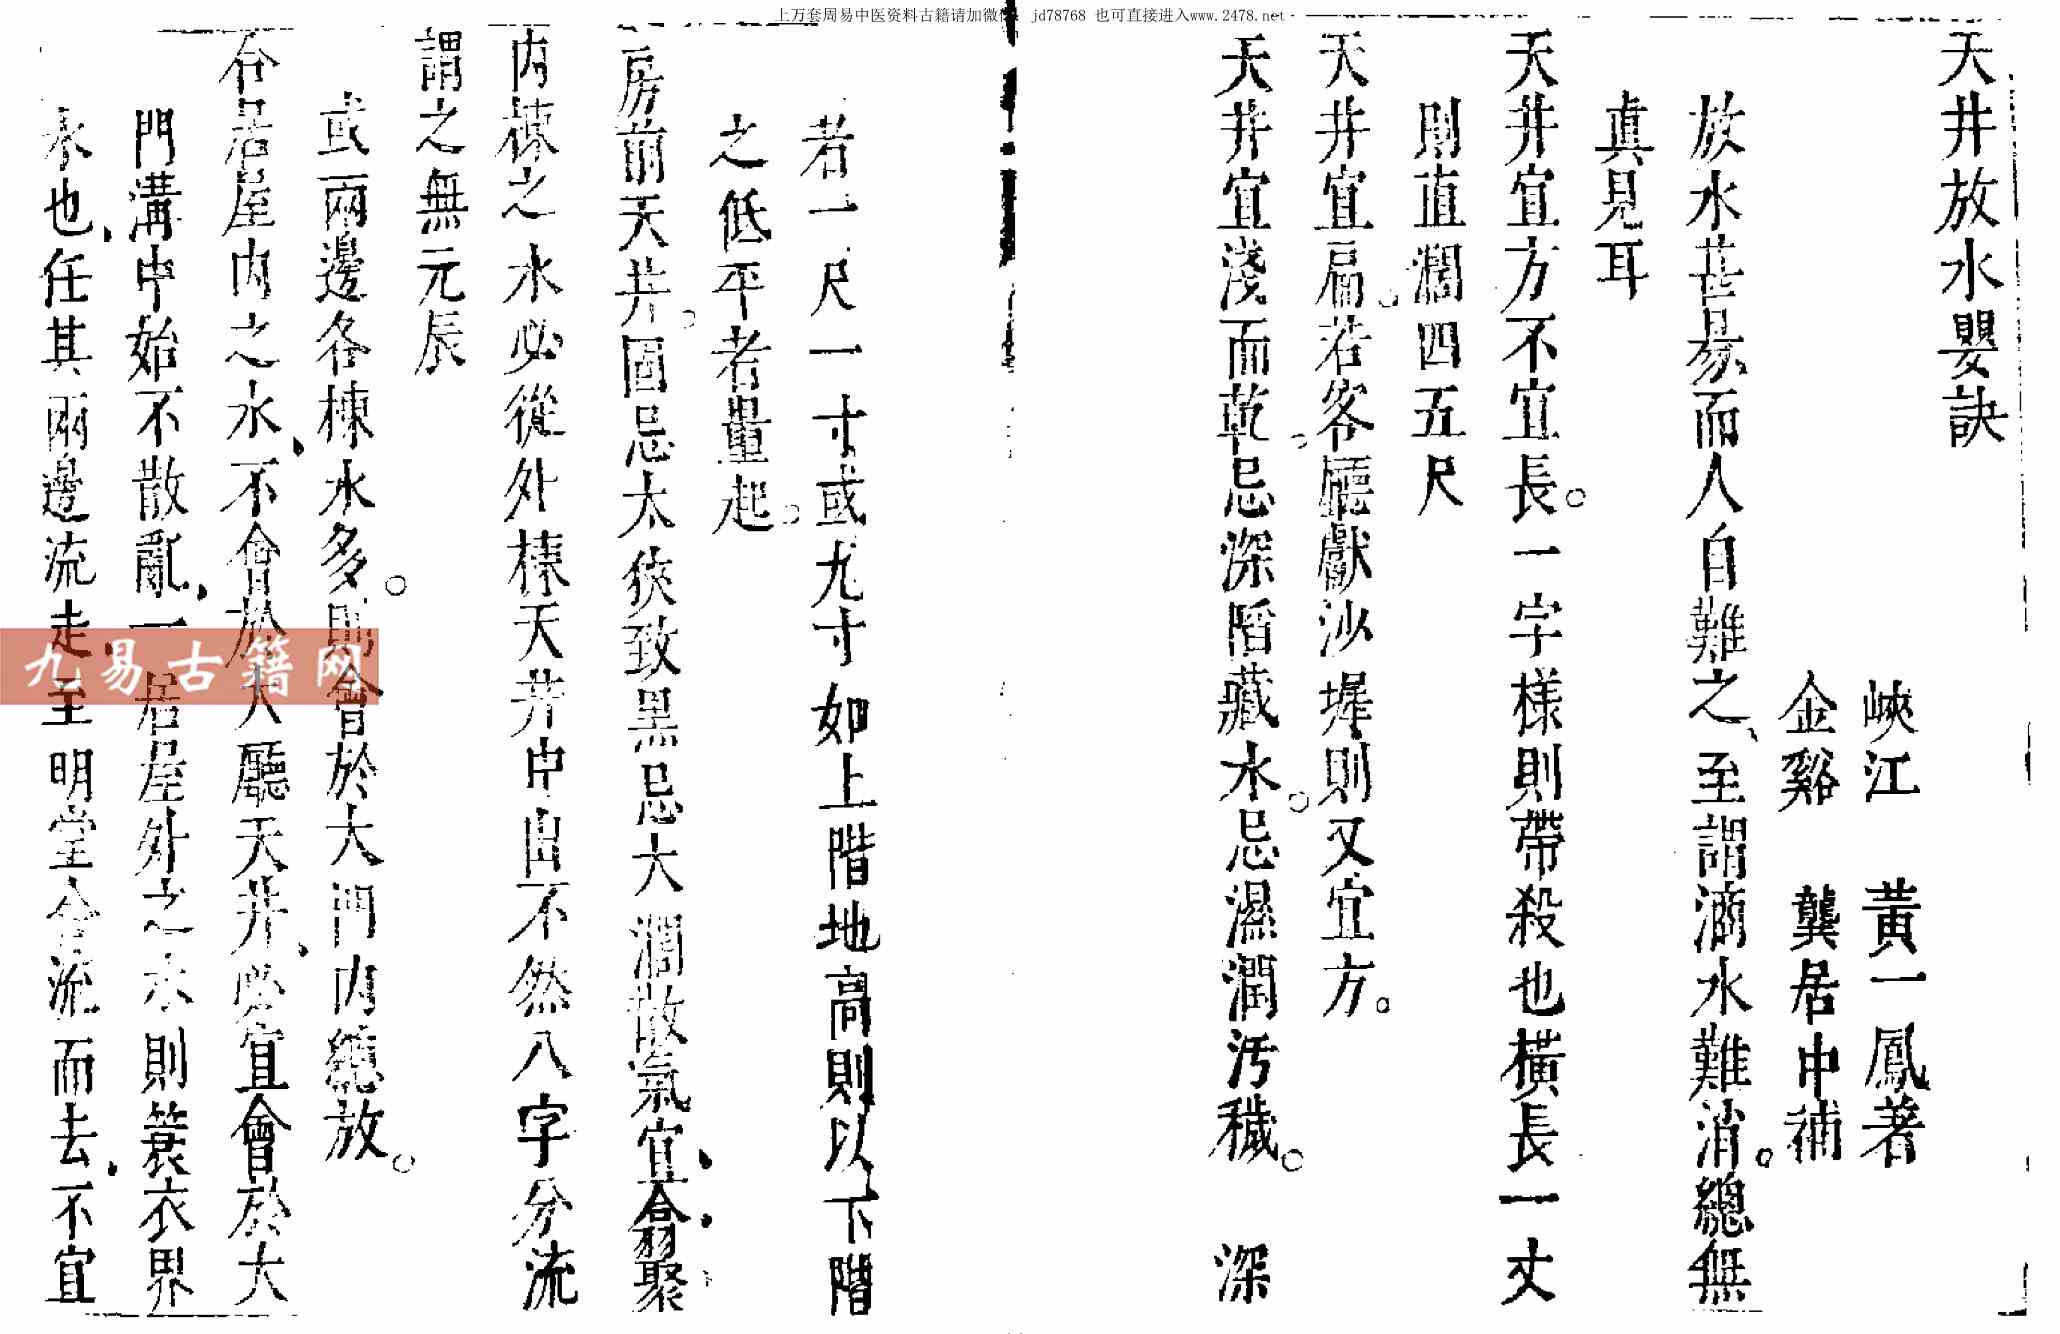 上万套周易中医资料古籍请加微信 jd78768 也可直接进入www.2478.net
天井放水嬰訣
峽江 黃一鳳著
金谿 龔居中補
放水甚易而人自難之、至謂滴水難消。總無
真見耳
天井宜方不宜長。一字樣則帶殺也橫長一丈
則直濶四五尺
天井宜扁。若客廳獻沙墀則又宜方。
天井宜淺而乾。忌深陷藏水。忌濕潤污穢。 深
者一尺一寸或九寸如上階地高則以下階
之低平者量起。
房前天井。固忌太狹致黑忌大濶散氣宜、翕聚
內棟之水必從外棟天井中出不然八字分流
謂之無元辰
或兩邊各棟水多。則會於大門內總放。
合居屋內之水、不會於大廳天井、必宜會於大
門溝中始不散亂、一居屋外之水則簑衣界
水也、任其兩邊流走、至明堂合流而去、不宜
九易古籍网